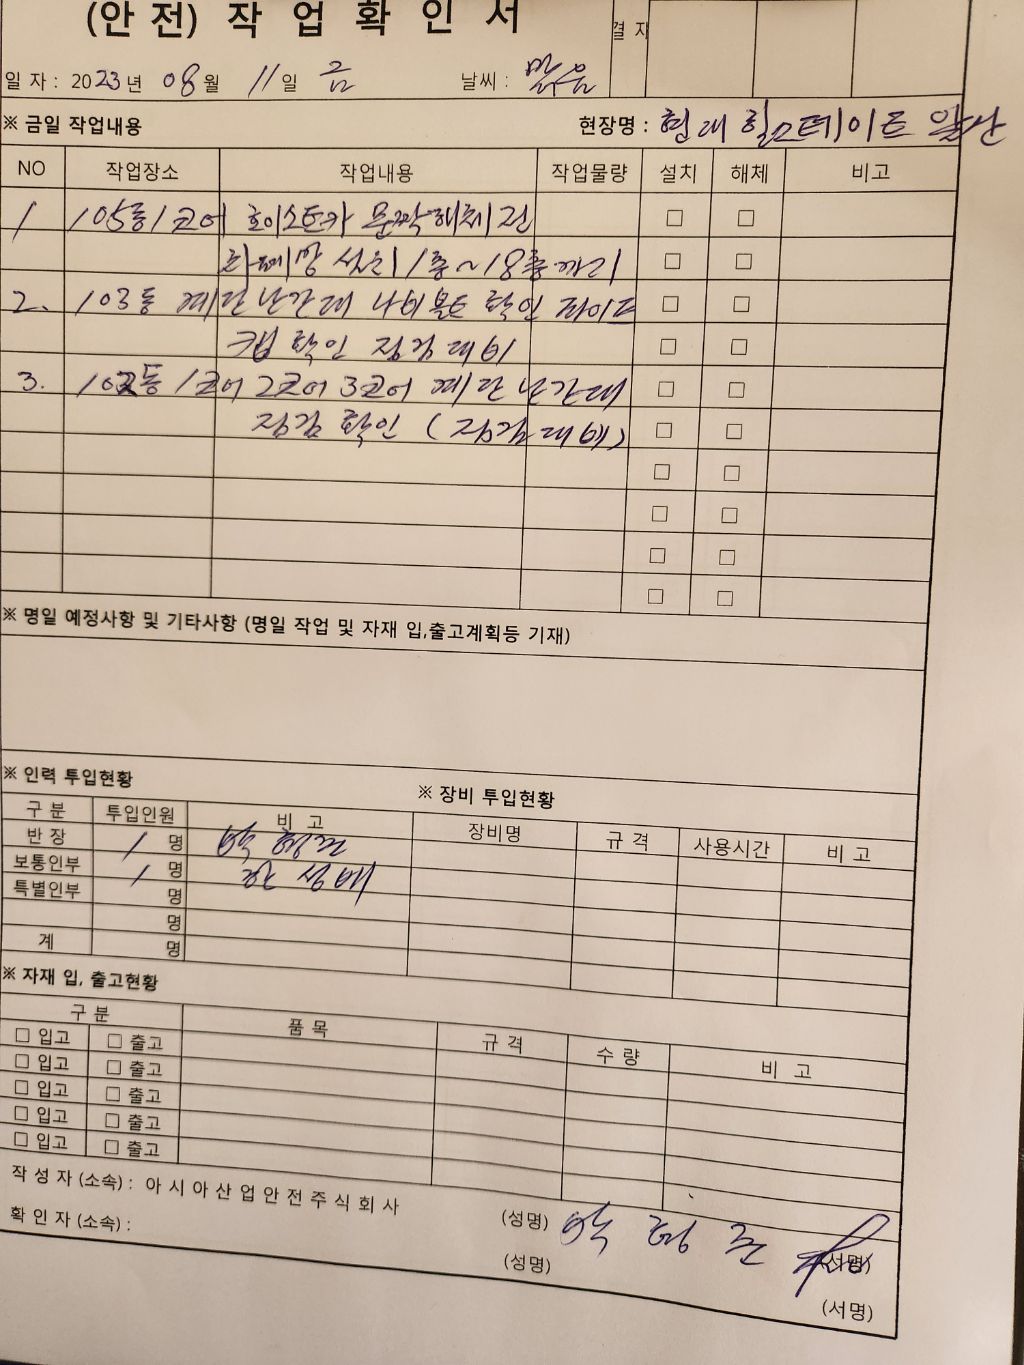 (안 전) 작 업 확 인 서
결 자
일 자 : 2023년 08월 11일 금 날씨 : 맑음
※ 금일 작업내용 현장명 : 현대 힐스테이트 일산
NO 작업장소 작업내용 작업물량 설치 해체 비고
1 105동 1코어 호이스트카 문짝해체 전 □ □
낙폐망 설치 1층~18층 까지 □ □
2. 103동 계단난간대 나비볼트 확인 파이프 □ □
캡 확인 점검대비 □ □
3. 102동 1코어 2코어 3코어 계단 난간대 □ □
점검 확인 (점검대비) □ □
□ □
□ □
□ □
□ □
※ 명일 예정사항 및 기타사항 (명일 작업 및 자재 입,출고계획등 기재)
※ 인력 투입현황 ※ 장비 투입현황
구 분 투입인원 비 고 장비명 규 격 사용시간 비 고
반 장 1 명 박
보통인부 1 명 한
특별인부 명
명
계 명
※ 자재 입, 출고현황
구 분 품 목 규 격 수 량 비 고
□ 입고 □ 출고
□ 입고 □ 출고
□ 입고 □ 출고
□ 입고 □ 출고
□ 입고 □ 출고
작 성 자 (소속) : 아 시 아 산 업 안 전 주 식 회 사 (성명) 박 (서명)
확 인 자 (소속) : (성명) (서명)